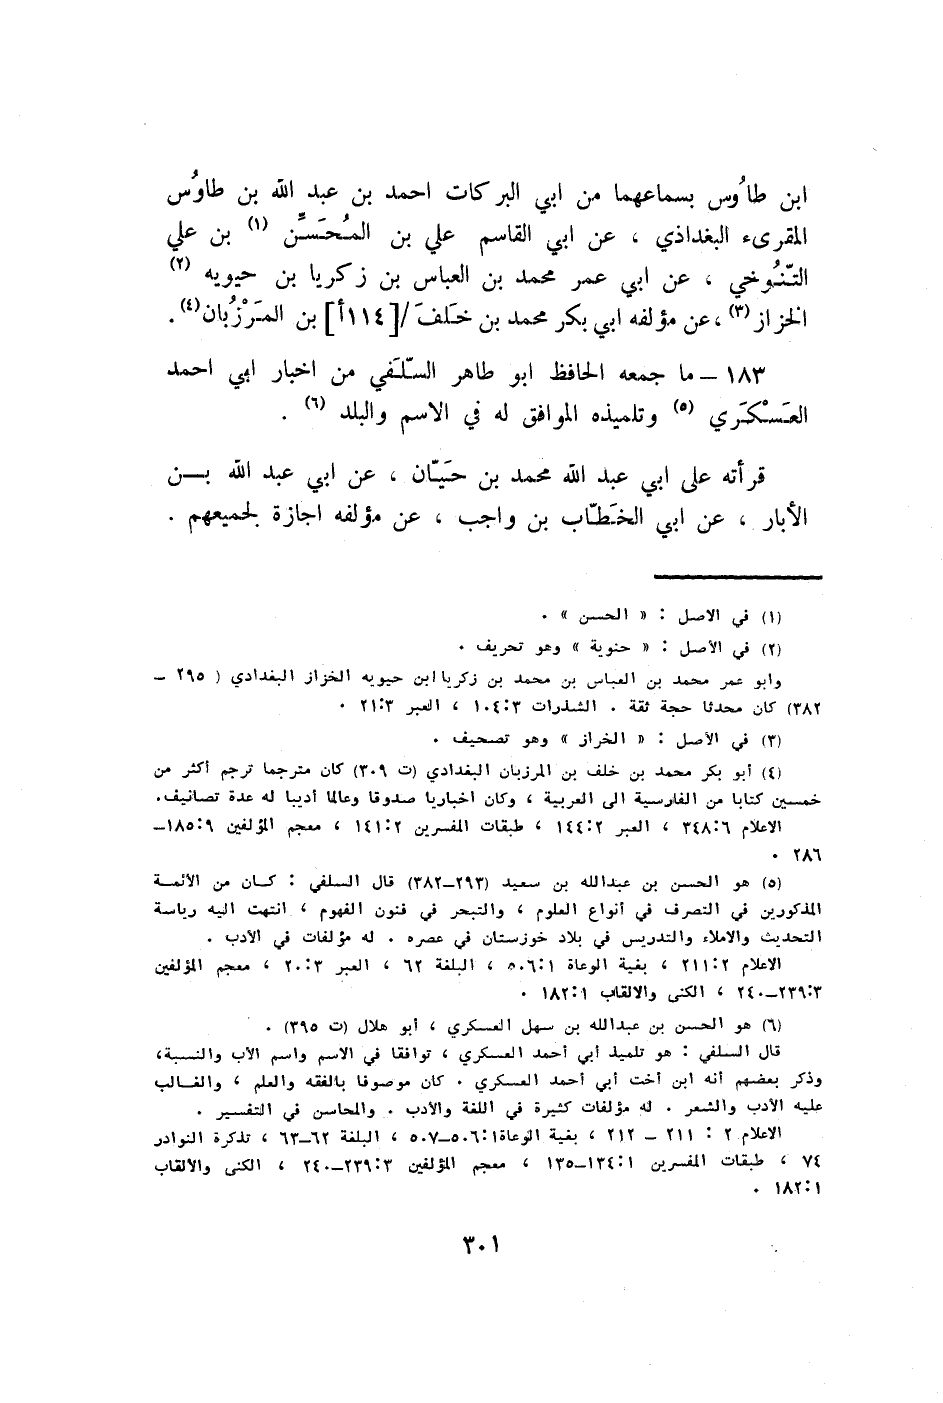 ابن طاوُس بسماعهما من ابي البركات احمد بن عبد الله بن طاوُس
المقرىء البغداذي ، عن ابي القاسم علي بن المُحَسَّن (١) بن علي
التّنُوخي ، عن ابي عمر محمد بن العباس بن زكريا بن حيويه (٢)
الخزاز (٣) ، عن مؤلفه ابي بكر محمد بن خلَفَ /[١١٤أ] بن المَرْزُبان (٤) .
١٨٣ – ما جمعه الحافظ ابو طاهر السِّلَفي من اخبار ابي احمد
العَسْكَري (٥) وتلميذه الموافق له في الاسم والبلد (٦) .
قرأته على ابي عبد الله محمد بن حَيّان ، عن ابي عبد الله بـــن
الأبار ، عن ابي الخَطّاب بن واجب ، عن مؤلفه اجازة لجميعهم .
(١) في الاصل : « الحسن » .
(٢) في الأصل : « حنوية » وهو تحريف .
وابو عمر محمد بن العباس بن محمد بن زكريا ابن حيويه الخزاز البغدادي ( ٢٩٥ –
٣٨٢) كان محدثا حجة ثقة . الشذرات ١٠٤:٣ ، العبر ٢١:٣ .
(٣) في الأصل : « الخراز » وهو تصحيف .
(٤) أبو بكر محمد بن خلف بن المرزبان البغدادي (ت ٣٠٩) كان مترجما ترجم أكثر من
خمسين كتابا من الفارسية الى العربية ، وكان اخباريا صدوقا وعالما أديبا له عدة تصانيف.
الاعلام ٣٤٨:٦ ، العبر ١٤٤:٢ ، طبقات المفسرين ١٤١:٢ ، معجم المؤلفين ١٨٥:٩–
٢٨٦ .
(٥) هو الحسن بن عبدالله بن سعيد (٢٩٣–٣٨٢) قال السلفي : كــان من الأئمــة
المذكورين في التصرف في أنواع العلوم ، والتبحر في فنون الفهوم ، انتهت اليه رياسة
التحديث والاملاء والتدريس في بلاد خوزستان في عصره . له مؤلفات في الأدب .
الاعلام ٢١١:٢ ، بغية الوعاة ٥٠٦:١ ، البلغة ٦٢ ، العبر ٢٠:٣ ، معجم المؤلفين
٢٣٩:٣–٢٤٠ ، الكنى والالقاب ١٨٢:١ .
(٦) هو الحسن بن عبدالله بن سهل العسكري ، أبو هلال (ت ٣٩٥) .
قال السلفي : هو تلميذ أبي أحمد العسكري ، توافقا في الاسم واسم الأب والنسبة،
وذكر بعضهم أنه ابن أخت أبي أحمد العسكري . كان موصوفا بالفقه والعلم ، والغــالب
عليه الأدب والشعر . له مؤلفات كثيرة في اللغة والأدب . والمحاسن في التفسير .
الاعلام ٢ : ٢١١ – ٢١٢ ، بغية الوعاة٥٠٦:١–٥٠٧ ، البلغة ٦٢–٦٣ ، تذكرة النوادر
٧٤ ، طبقات المفسرين ١٣٤:١–١٣٥ ، معجم المؤلفين ٢٣٩:٣–٢٤٠ ، الكنى والالقاب
١٨٢:١ .
٣٠١